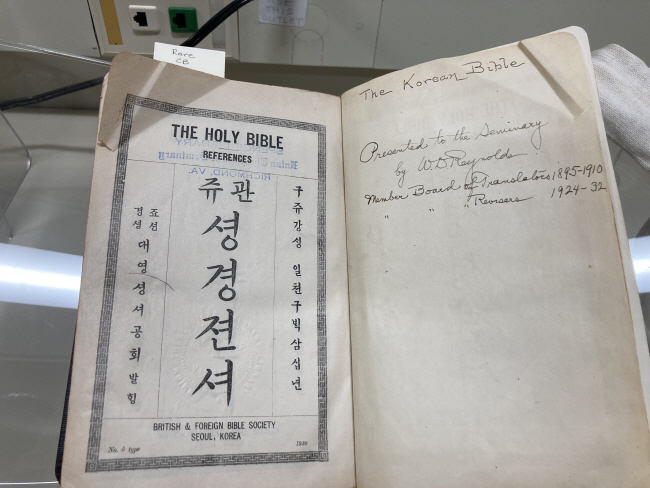 Rare
CB
THE HOLY BIBLE
REFERENCES
RICHMOND, VA.
구쥬강셩 일쳔구빅삼십년
관쥬
셩경젼셔
죠션
경셩
대영셩셔공회발힝
BRITISH & FOREIGN BIBLE SOCIETY
SEOUL, KOREA
type
The Korean Bible
Presented to the Seminary
by W.D. Reynolds
Member Board of Translators 1895-1910
" " " Revisers 1924-32